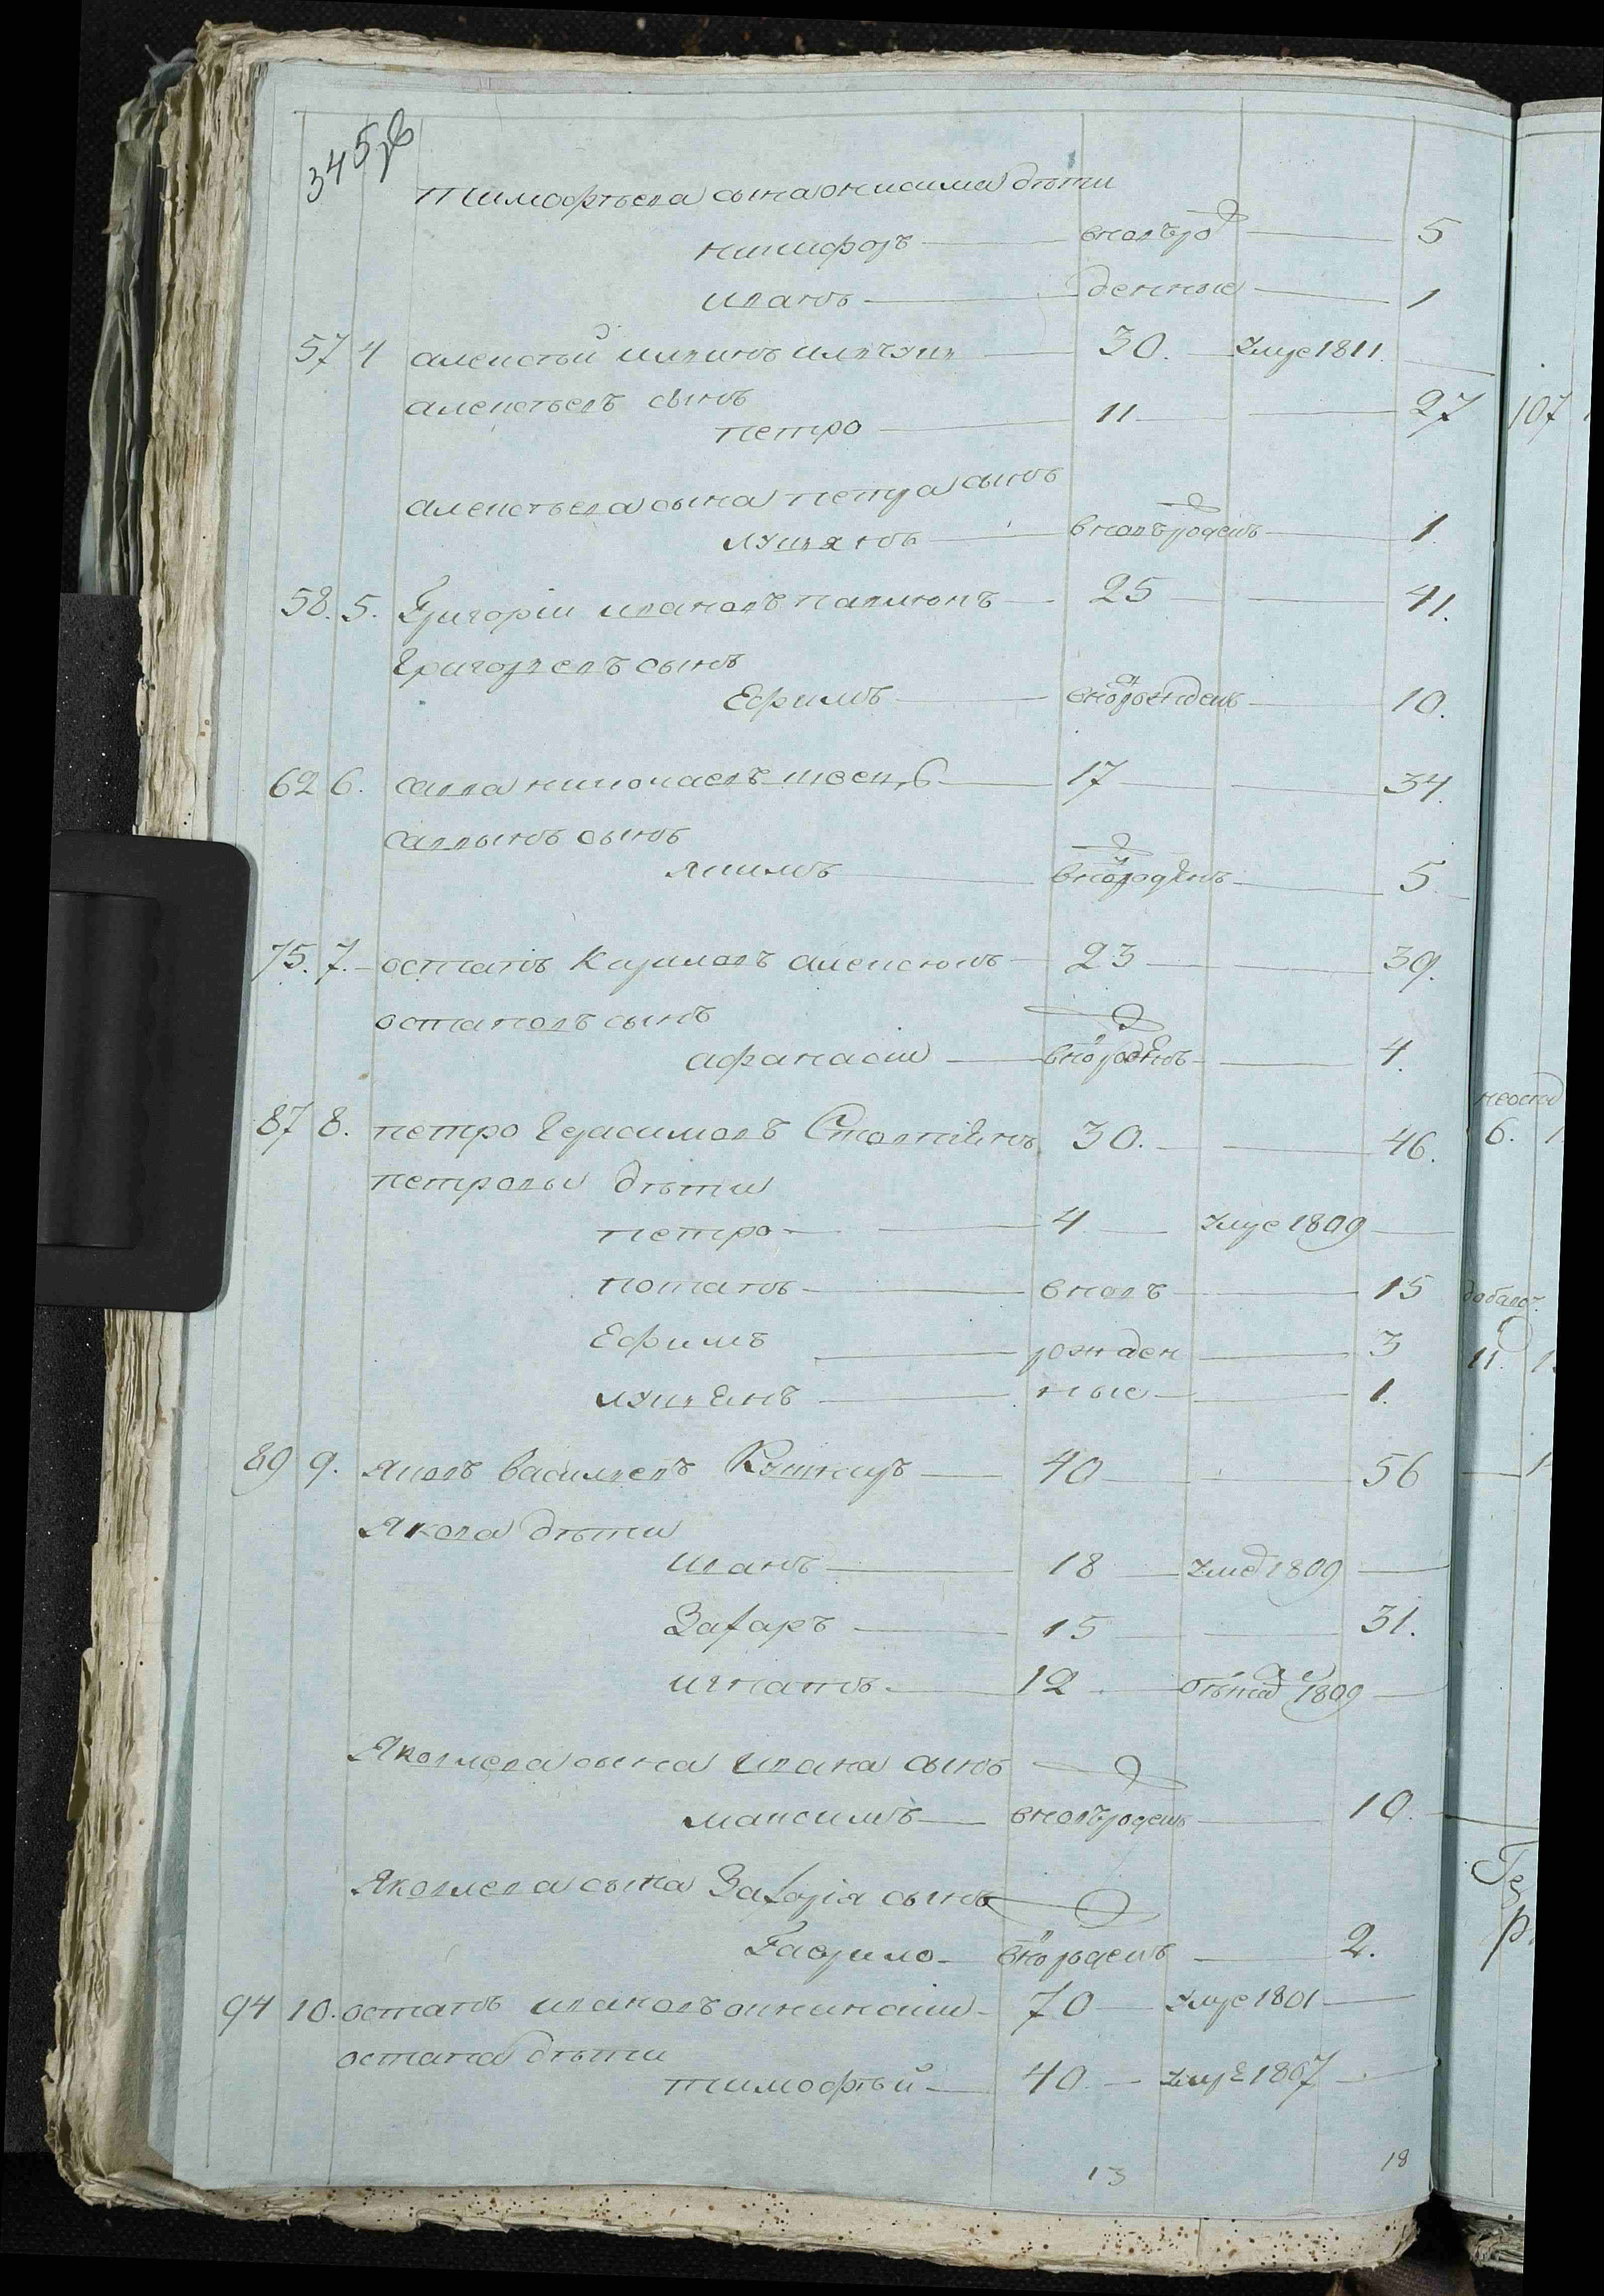 345 об
тимофѣева сына онисима дѣти
никифоръ вновьрож 5
иванъ денные 1
57 4 алексѣй 30. умре 1811.
алексѣевъ сынъ
петро 11 27
алексѣева сына петра сынъ
лукянъ вновьрожденъ 1
58. 5. Григорій ивановъ 25 41.
Григорьевъ сынъ
Ефимъ вноврожденъ 10.
62 6. савва николаевъ швецъ 17 34.
саввинъ сынъ
якимъ вноврожденъ 5
75. 7. остапъ Кириловъ 23 39.
остаповъ сынъ
афанасіи вноврожденъ 4.
87 8. петро Герасимовъ 30. 46.
петровы дѣти
петро 4 умре 1809
потапъ вновъ 15
Ефимъ рожден 3
лукянъ ные 1.
89 9. яковъ Васильевъ 40 56
Якова дѣти
иванъ 18 умре 1809
Захаръ 15 31.
игнатъ 12 1809
Яковлева сына ивана сынъ
максимъ вновьрожденъ 10.
Яковлева сына Захарія сынъ
Гаврило вноврожденъ 2.
94 10. остапъ ивановъ 70 умре 1801
остапа дѣти
тимофѣй 40 умре 1807
13 18
107
6.
11.